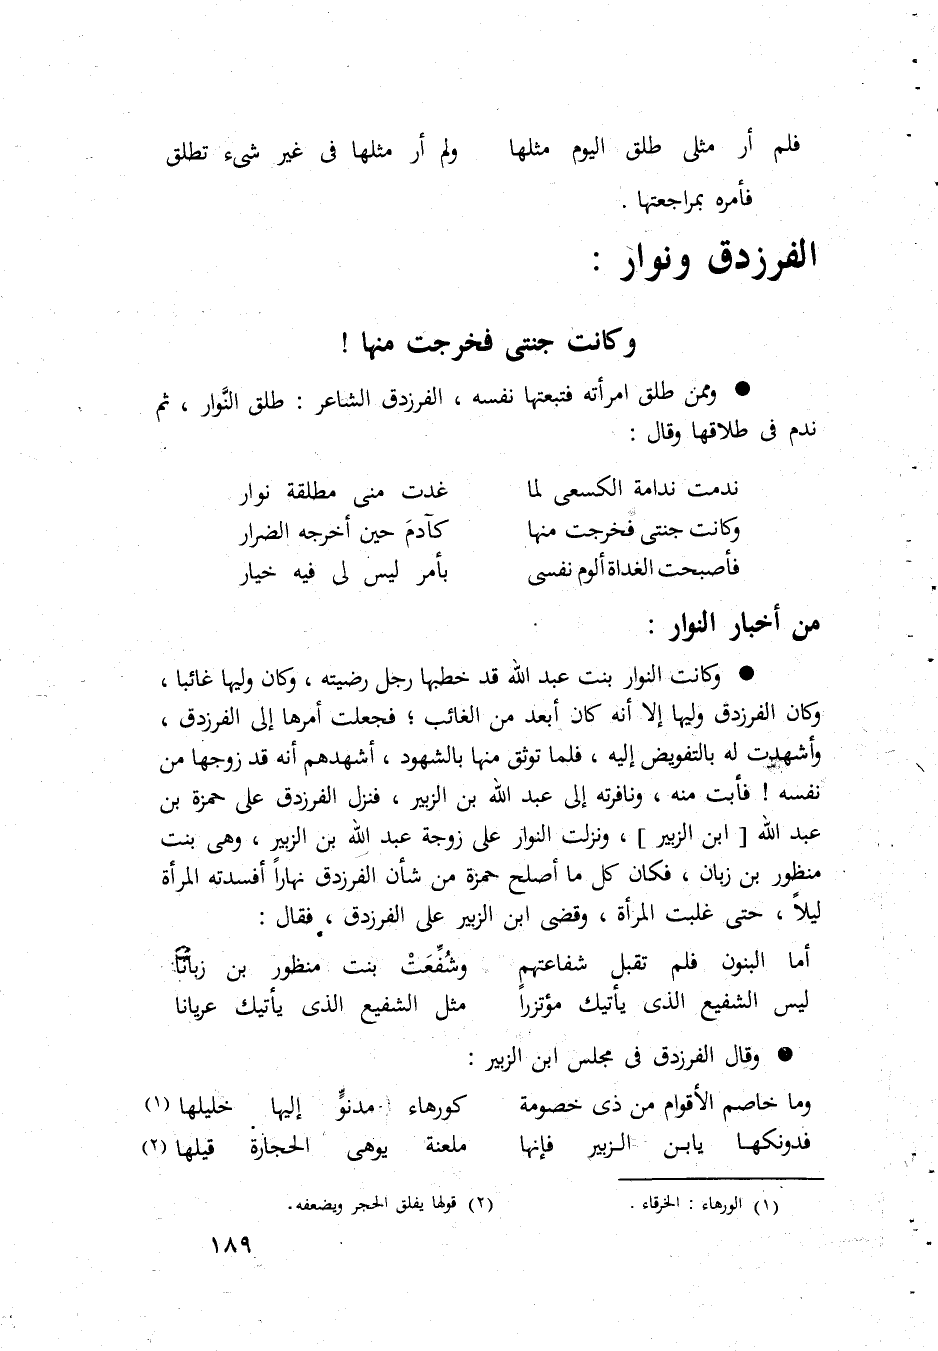 فلم أر مثلى طلق اليوم مثلها ولم أر مثلها فى غير شىء تطلق
فأمره بمراجعتها .
الفرزدق ونوار :
وكانت جنتى فخرجت منها !
● وممن طلق امرأته فتبعتها نفسه ، الفرزدق الشاعر : طلق النَّوار ، ثم
ندم فى طلاقها وقال :
ندمت ندامة الكسعى لما غدت منى مطلقة نوار
وكانت جنتى فخرجت منها كآدمَ حين أخرجه الضرار
فأصبحت الغداة ألوم نفسى بأمر ليس لى فيه خيار
من أخبار النوار :
● وكانت النوار بنت عبد الله قد خطبها رجل رضيته ، وكان وليها غائبا ،
وكان الفرزدق وليها إلا أنه كان أبعد من الغائب ؛ فجعلت أمرها إلى الفرزدق ،
وأشهدت له بالتفويض إليه ، فلما توثق منها بالشهود ، أشهدهم أنه قد زوجها من
نفسه ! فأبت منه ، ونافرته إلى عبد الله بن الزبير ، فنزل الفرزدق على حمزة بن
عبد الله [ ابن الزبير ] ، ونزلت النوار على زوجة عبد الله بن الزبير ، وهى بنت
منظور بن زبان ، فكان كل ما أصلح حمزة من شأن الفرزدق نهاراً أفسدته المرأة
ليلاً ، حتى غلبت المرأة ، وقضى ابن الزبير على الفرزدق ، فقال :
أما البنون فلم تقبل شفاعتهم وشُفِّعَتْ بنت منظور بن زبانا
ليس الشفيع الذى يأتيك مؤتزراً مثل الشفيع الذى يأتيك عريانا
● وقال الفرزدق فى مجلس ابن الزبير :
وما خاصم الأقوام من ذى خصومة كورهاء مدنوٍّ إليها خليلها (١)
فدونكها يابن الزبير فإنها ملعنة يوهى الحجارة قيلها (٢)
(١) الورهاء : الخرقاء . (٢) قولها يفلق الحجر ويضعفه.
١٨٩